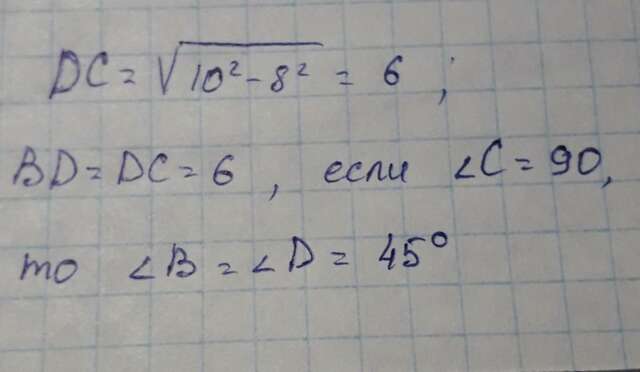 DC = √10² - 8² = 6 ;
BD = DC = 6 , если ∠C = 90,
то ∠B = ∠D = 45°